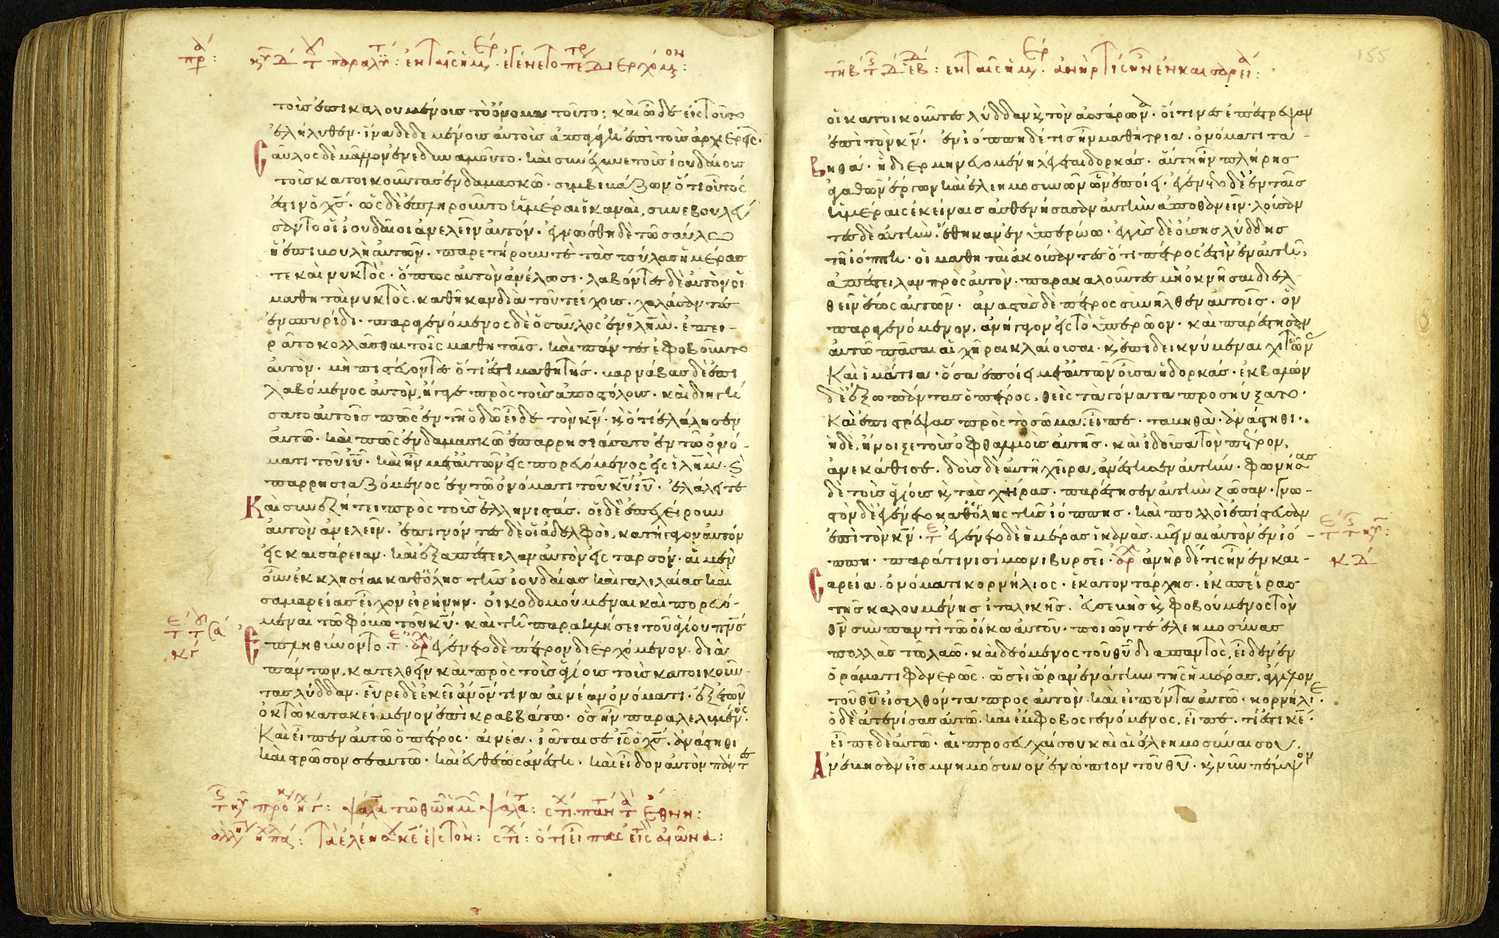 τοὺς ἐπικαλουμένους τὸ ὄνομα τοῦτο; καὶ ὧδε εἰς τοῦτο
ἐλήλυθεν· ἵνα δεδεμένους αὐτοὺς ἀπαγάγῃ ἐπὶ τοὺς ἀρχιερεῖς·
Σαῦλος δὲ μᾶλλον ἐνεδυναμοῦτο· καὶ συνέχυνε τοὺς ἰουδαίους
τοὺς κατοικοῦντας ἐν δαμασκῷ· συμβιβάζων ὅτι οὗτός
ἐστιν ὁ χς· ὡς δὲ ἐπληροῦντο ἡμέραι ἱκαναὶ, συνεβουλεύ
σαντο οἱ ἰουδαῖοι ἀνελεῖν αὐτόν· ἐγνώσθη δὲ τῷ σαύλῳ
ἡ ἐπιβουλὴ αὐτῶν· παρετήρουν τὲ τὰς πύλας ἡμέρας
τε καὶ νυκτὸς· ὅπως αὐτὸν ἀνέλωσι· λαβόντες δὲ αὐτὸν οἱ
μαθηταὶ νυκτὸς· καθῆκαν διὰ τοῦ τείχους· χαλάσαντες
ἐν σπυρίδι· παραγενόμενος δὲ ὁ σαῦλος ἐν ιλημ· ἐπει-
ρᾶτο κολλᾶσθαι τοῖς μαθηταῖς· καὶ πάντες ἐφοβοῦντο
αὐτὸν· μὴ πιστεύοντες ὅτι ἐστὶ μαθητής· βαρνάβας δὲ ἐπι
λαβόμενος αὐτὸν, ἤγαγε πρὸς τοὺς ἀποστόλους· καὶ διηγή
σατο αὐτοῖς πῶς ἐν τῇ ὁδῷ εἶδε τὸν κν· κ ὅτι ἐλάλησεν
αὐτῷ· καὶ πῶς ἐν δαμασκῷ ἐπαρρησιάσατο ἐν τῷ ὀνό-
ματι τοῦ ιυ· καὶ ἦν μετ αὐτῶν εἰσπορευόμενος εἰς ιλημ· κ
παρρησιαζόμενος ἐν τῷ ὀνόματι του κυ ιυ· ἐλάλει τὲ
Καὶ συνεζήτει πρὸς τοὺς ἑλληνιστάς· οἱ δὲ ἐπεχείρουν
αὐτὸν ἀνελεῖν· ἐπιγνόντες δὲ οἱ ἀδελφοὶ, κατήγαγον αὐτὸν
εἰς καισάρειαν· καὶ ἐξαπέστειλαν αὐτὸν εἰς ταρσόν· αἱ μὲν
οὖν ἐκκλησίαι καθόλης τῆς ἰουδαίας καὶ γαλιλαίας καὶ
σαμαρείας εἶχον εἰρήνην· οἰκοδομούμεναι καὶ πορευό-
μεναι τῷ φόβῳ τοῦ κυ· καὶ τῇ παρακλήσει τοῦ ἁγίου πνς
ἐπληθύνοντο· ἐγένετο δὲ πέτρον διερχόμενον διὰ
πάντων, κατελθεῖν καὶ πρὸς τοὺς ἁγίους τοὺς κατοικοῦν-
τας λύδδαν· εὗρε δὲ ἐκεῖ ἄνον τινα αἰνέαν ὀνόματι· ἐξ ἐτῶν
ὀκτὼ κατακείμενον ἐπὶ κραββάτῳ· ὃς ἦν παραλελυμένος·
Καὶ εἶπεν αὐτῷ ὁ πέτρος· αἰνέα· ἰᾶταί σε ις ὁ χς· ἀνάστηθι
καὶ στρῶσον σεαυτῷ· καὶ εὐθέως ἀνέστη· καὶ εἶδον αὐτὸν πάντες
οἱ κατοικοῦντες λύδδαν κ τὸν ἀσσάρωνα· οἵτινες ἐπέστρεψαν
ἐπὶ τὸν κν· ἐν ἰόππῃ δέ τις ἦν μαθήτρια· ὀνόματι τα-
βηθά· ἣ διερμηνευομένη λέγεται δορκάς· αὕτη ἦν πλήρης
ἀγαθῶν ἔργων καὶ ἐλεημοσυνῶν ὧν ἐποίει· ἐγένετο δὲ ἐν ταῖς
ἡμέραις ἐκείναις ἀσθενήσασαν αὐτὴν ἀποθανεῖν· λούσαν
τες δὲ αὐτὴν, ἔθηκαν ἐν ὑπερώω· ἐγγὺς δὲ οὔσης λύδδης
τῇ ἰόππῃ· οἱ μαθηταὶ ἀκούσαντες ὅτι πέτρος ἐστὶν ἐν αὐτῇ,
ἀπέστειλαν πρὸς αὐτὸν· παρακαλοῦντες μὴ ὀκνῆσαι διελ-
θεῖν ἕως αὐτῶν· ἀναστὰς δὲ πέτρος συνῆλθεν αὐτοῖς· ὃν
παραγενόμενον, ἀνήγαγον εἰς τὸ ὑπερῷον· καὶ παρέστησαν
αὐτῷ πᾶσαι αἱ χῆραι κλαίουσαι· κ ἐπιδεικνύμεναι χιτῶνας
Καὶ ἱμάτια· ὅσα ἐποίει μετ αὐτῶν οὖσα ἡ δορκάς· ἐκβαλὼν
δὲ ἔξω πάντας ὁ πέτρος, θεὶς τὰ γόνατα προσηύξατο·
Καὶ ἐπιστρέψας πρὸς τὸ σῶμα, εἶπε· ταβηθὰ ἀνάστηθι·
ἡ δὲ, ἤνοιξε τοὺς ὀφθαλμοὺς αὐτῆς· καὶ ἰδοῦσα τὸν πέτρον,
ἀνεκάθισε· δοὺς δὲ αὐτῇ χεῖρα, ἀνέστησεν αὐτήν· φωνήσας
δὲ τοὺς ἁγίους κ τὰς χήρας· παρέστησεν αὐτὴν ζῶσαν· γνω-
στὸν δὲ ἐγένετο καθόλης τῆς ἰόππης· καὶ πολλοὶ ἐπίστευσαν
ἐπὶ τὸν κν· ἐγένετο δὲ ἡμέρας ἱκανὰς μεῖναι αὐτὸν ἐν ἰό-
ππῃ· παρά τινι σίμωνι βυρσεῖ· ἀνὴρ δέ τις ἦν ἐν και-
σαρεία· ὀνόματι κορνήλιος· ἑκατοντάρχης· ἐκ σπείρας
τῆς καλουμένης ἰταλικῆς· εὐσεβὴς κ φοβούμενος τὸν
θν σὺν παντὶ τῷ οἴκω αὐτοῦ· ποιῶν τὲ ἐλεημοσύνας
πολλὰς τῷ λαῷ· καὶ δεόμενος τοῦ θυ διαπαντὸς, εἶδεν ἐν
ὁράματι φανερῶς· ὡσεὶ ὥραν ἐνάτην τῆς ἡμέρας, ἄγγελον
τοῦ θυ εἰσελθόντα πρὸς αὐτὸν· καὶ εἰπόντα αὐτῷ· κορνήλιε·
ὁ δὲ ἀτενίσας αὐτῷ· καὶ ἔμφοβος γενόμενος, εἶπε· τί ἐστι κε·
εἶπε δὲ αὐτῷ· αἱ προσευχαί σου καὶ αἱ ἐλεημοσύναι σου
Ἀνέβησαν εἰς μνημόσυνον ἐνώπιον τοῦ θυ· κ νῦν πέμψον